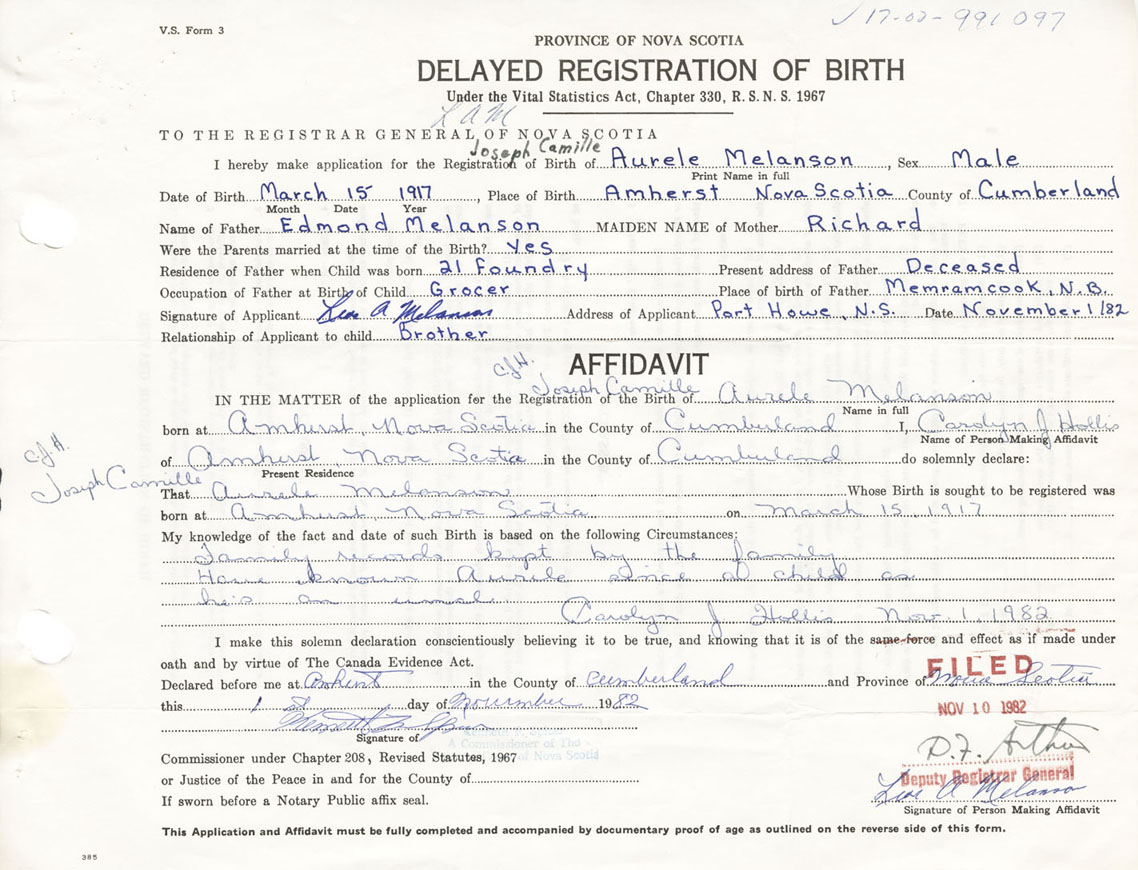 17-02-991097
V.S. Form 3
PROVINCE OF NOVA SCOTIA
DELAYED REGISTRATION OF BIRTH
Under the Vital Statistics Act, Chapter 330, R.S.N.S. 1967
L A M
TO THE REGISTRAR GENERAL OF NOVA SCOTIA
Joseph Camille
I hereby make application for the Registration of Birth of Aurele Melanson, Sex Male
Print Name in full
Date of Birth March 15 1917, Place of Birth Amherst Nova Scotia County of Cumberland
Month Date Year
Name of Father Edmond Melanson MAIDEN NAME of Mother Richard
Were the Parents married at the time of the Birth? Yes
Residence of Father when Child was born 21 Foundry Present address of Father Deceased
Occupation of Father at Birth of Child Grocer Place of birth of Father Memramcook, N.B.
Signature of Applicant Leo A Melanson Address of Applicant Port Howe, N.S. Date November 1/82
Relationship of Applicant to child Brother
AFFIDAVIT
C.J.H.
Joseph Camille
IN THE MATTER of the application for the Registration of the Birth of Aurele Melanson
Name in full
born at Amherst, Nova Scotia in the County of Cumberland I, Carolyn J Hollis
Name of Person Making Affidavit
of Amherst, Nova Scotia in the County of Cumberland do solemnly declare:
Present Residence
C.J.H.
Joseph Camille
That Aurele Melanson Whose Birth is sought to be registered was
born at Amherst, Nova Scotia on March 15, 1917
My knowledge of the fact and date of such Birth is based on the following Circumstances:
Family records kept by the family
Have known Aurele since a child as
he's an uncle
Carolyn J Hollis Nov. 1, 1982
I make this solemn declaration conscientiously believing it to be true, and knowing that it is of the same force and effect as if made under
oath and by virtue of The Canada Evidence Act.
FILED
Declared before me at Amherst in the County of Cumberland and Province of Nova Scotia
this 1 st day of November 1982
NOV 10 1982
Signature of
A Commissioner of The
of Nova Scotia
D.F. Arthur
Commissioner under Chapter 208, Revised Statutes, 1967
Deputy Registrar General
or Justice of the Peace in and for the County of
Leo A Melanson
If sworn before a Notary Public affix seal.
Signature of Person Making Affidavit
This Application and Affidavit must be fully completed and accompanied by documentary proof of age as outlined on the reverse side of this form.
385